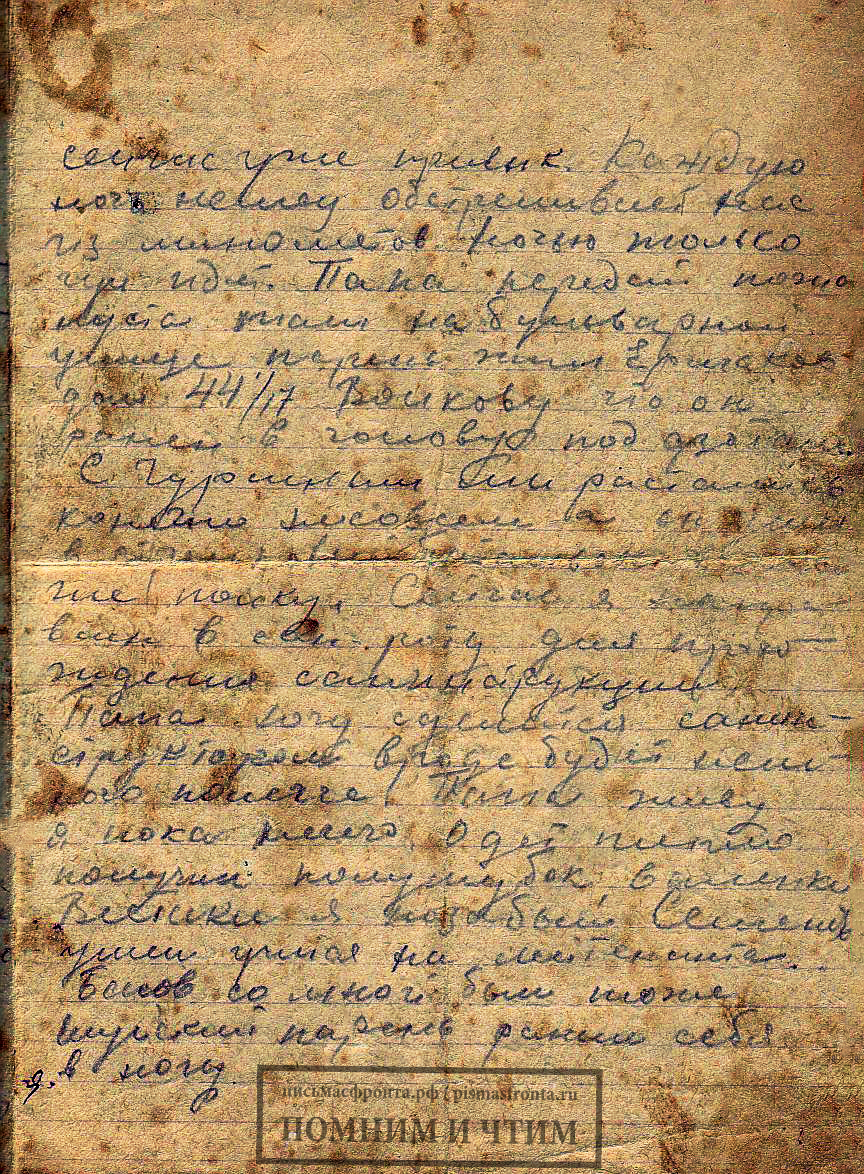 сейчас уже привык. Каждую
ночь немец обстреливает нас
из минометов ночью только
Папа передай пожа
луста там на бульварной
улице парень жил Ермаков
дом 44/17 Волкову что он
ранен в голову под
С Чуриным мы растались
конечно а он
в
же полку. Сейчас я
ван в сан. роту для прохо-
ждения санинструкции
Папа хочу сделатся санин-
структором вроде будет нем
ного полегче. Папа живу
я пока ничего. Одет тепло
получил полушубок валенки
Весники я позабыл Семенов
ушел учится на лейтенанта.
Басов со мной был тоже
шуйский парень ранил себя
в ногу
письмасфронта.рф / pismasfronta.ru
ПОМНИМ И ЧТИМ